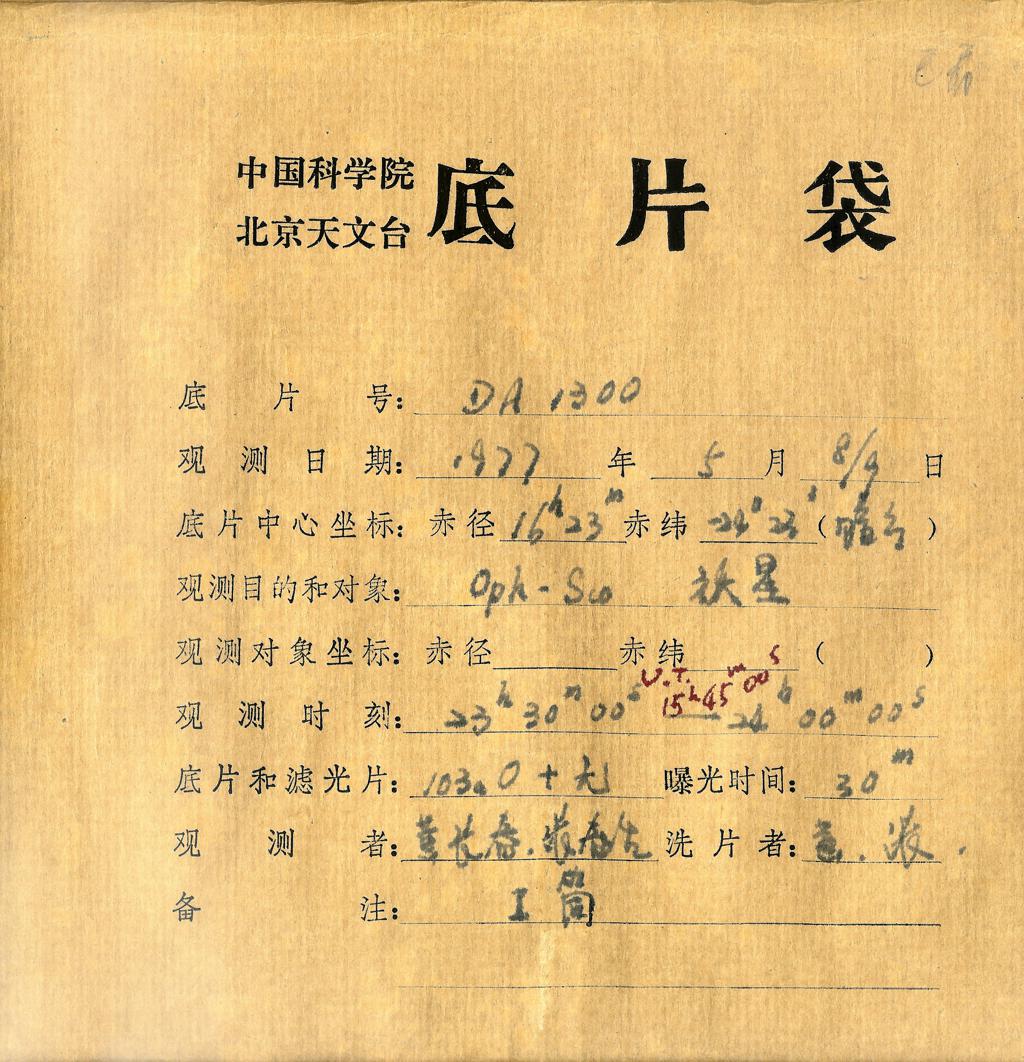 中国科学院
北京天文台 底片袋
底片号: DA 1300
观测日期: 1977 年 5 月 8/9 日
底片中心坐标: 赤径 16ʰ23ᵐ 赤纬 -24°23′ ( )
观测目的和对象: Oph-Sco 耀星
观测对象坐标: 赤径 赤纬 ( )
U.T. 15ʰ45ᵐ00ˢ
观测时刻: 23ʰ30ᵐ00ˢ — 24ʰ00ᵐ00ˢ
底片和滤光片: 103aO + 无 曝光时间: 30ᵐ
观测者: 长春. 张春生 洗片者: . 张.
备注: I 筒